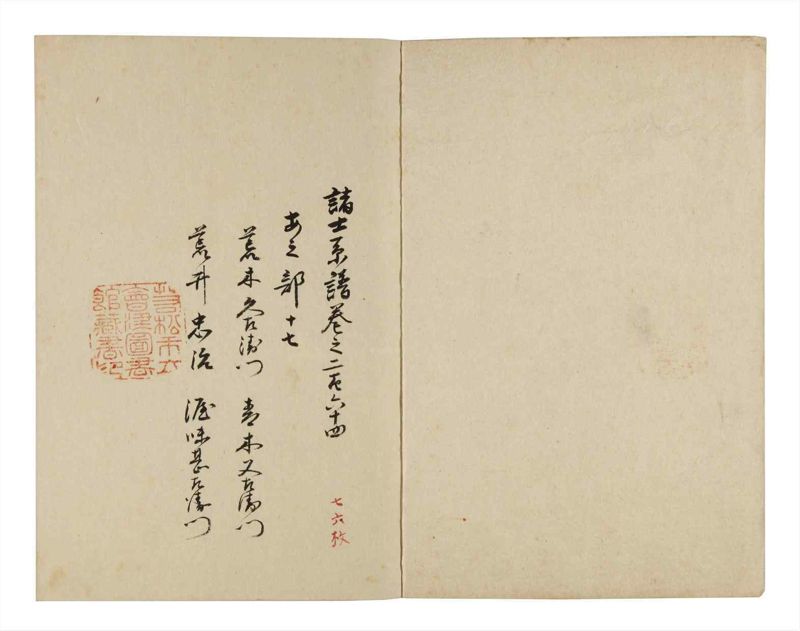 諸士系譜巻之二百六十四
あ之部 十七
荒木久右衛門 青木又左衛門
荒井忠治 渥味甚左衛門
七六枚
若松市立
會津圖書
館藏書印